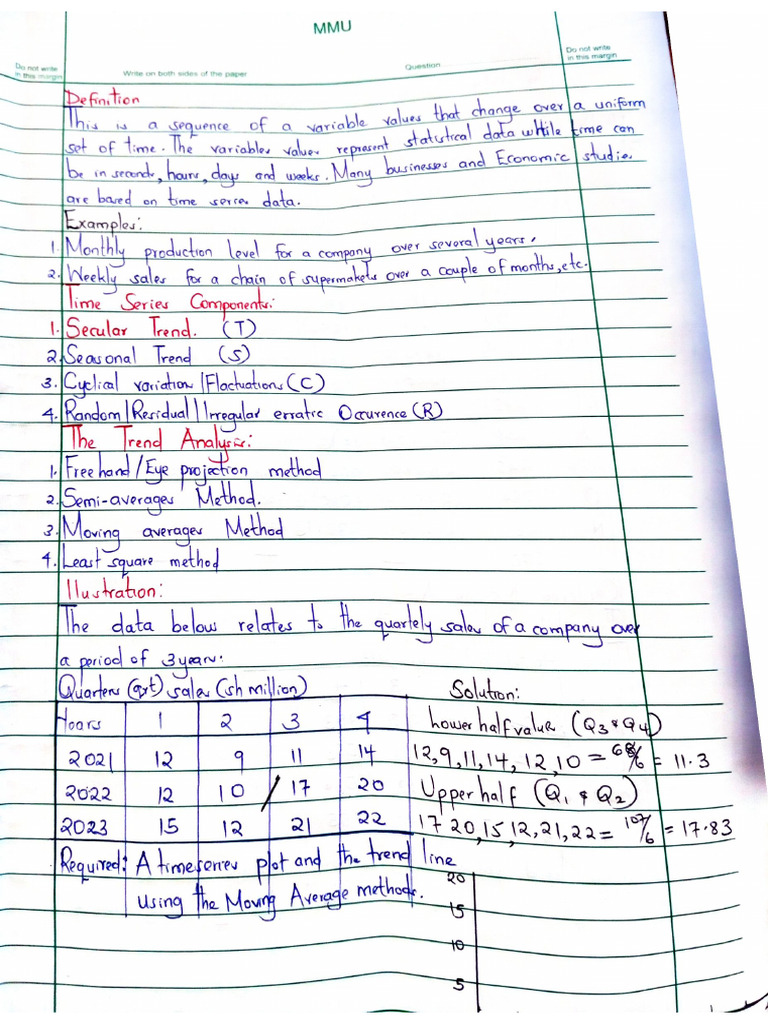 MMU
Do not write
in this margin
Write on both sides of the paper
Question
Do not write
in this margin
Definition
This is a sequence of a variable values that change over a uniform
set of time. The variables values represent statistical data while time can
be in seconds, hours, days and weeks. Many businesses and Economic studies
are based on time series data.
Examples:
1. Monthly production level for a company over several years.
2. Weekly sales for a chain of supermakets over a couple of months, etc.
Time Series Components:
1. Secular Trend. (T)
2. Seasonal Trend (S)
3. Cyclical variation/Flactuations (C)
4. Random/Residual/Irregular erratic Occurence (R)
The Trend Analysis:
1. Freehand/Eye projection method
2. Semi-averages Method.
3. Moving averages Method
4. Least square method
Illustration:
The data below relates to the quartely sales of a company over
a period of 3 years:
Quarters (qrt) sales (sh million)
Years 1 2 3 4
2021 12 9 11 14
2022 12 10 / 17 20
2023 15 12 21 22
Solution:
Lower half value (Q3 & Q4)
12, 9, 11, 14, 12, 10 = 68/6 = 11.3
Upper half (Q1 & Q2)
17 20, 15, 12, 21, 22 = 107/6 = 17.83
Required: A time series plot and the trend line
using the Moving Average methods.
20
15
10
5